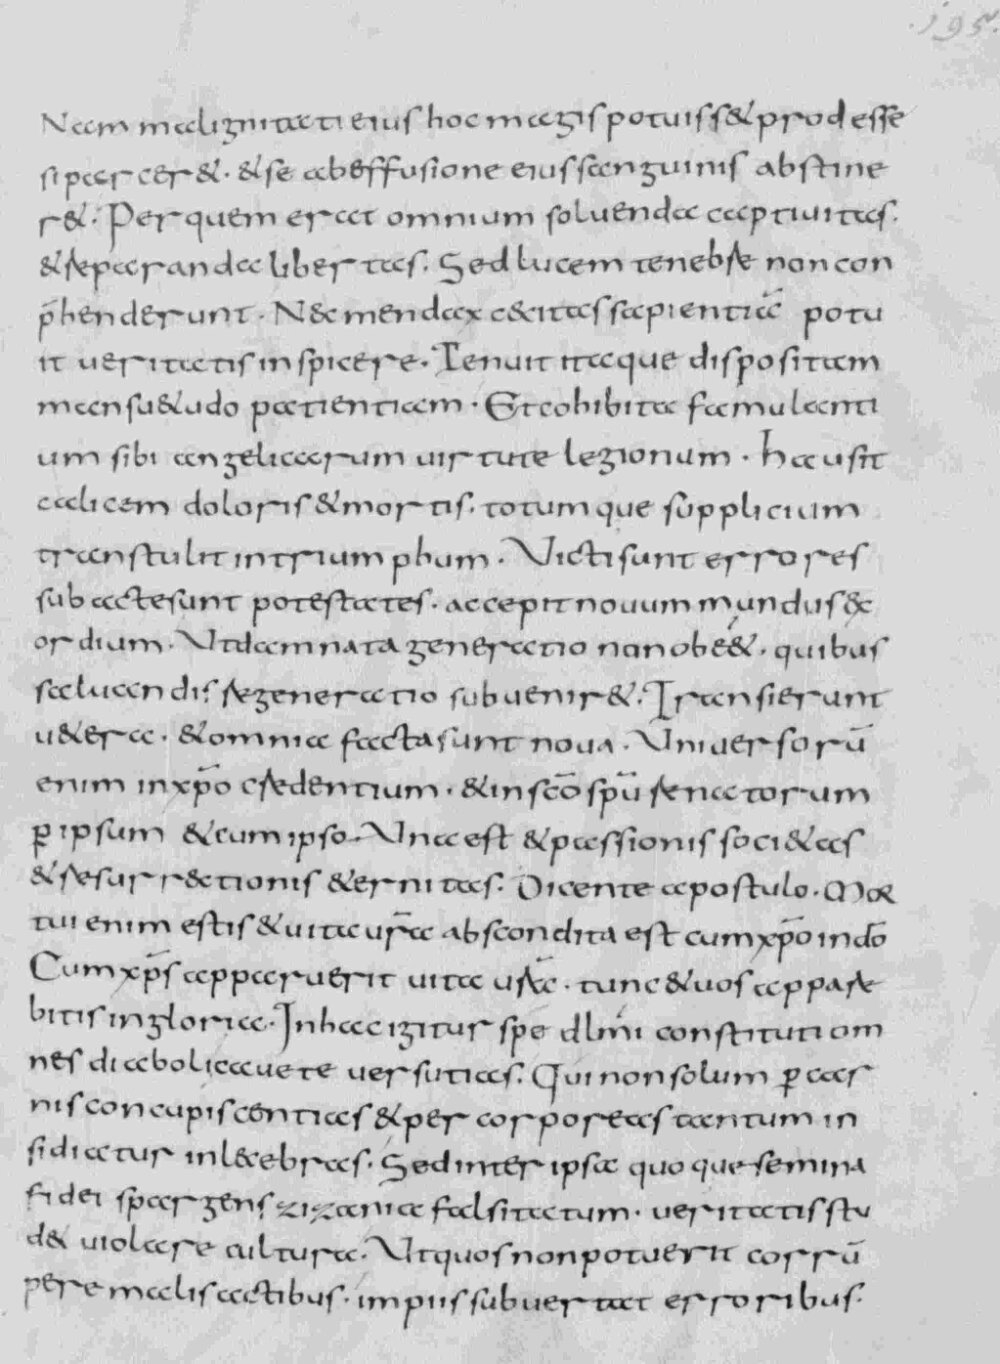 195.
Nam malignitati eius hoc magis potuiss& prodesse
si parcer&. &se ab effusione eius sanguinis abstine
r&. Per quem erat omnium soluenda captiuitas.
&reparanda libertas. Sed lucem tenebre non con
p̄henderunt. Nec mendax c&itas sapientiā potu
it ueritatis inspicere. Tenuit itaque dispositam
mansu&udo patientiam. Et cohibita famulanti
um sibi angelicarum uirtute legionum. hausit
calicem doloris & mortis. totumque supplicium
transtulit in triumphum. Victi sunt errores
subacte sunt potestates. accepit nouum mundus ex
ordium. Vt damnata generatio non obe&. quibus
saluandis regeneratio subuenir&. Transierunt
u&era. &omnia facta sunt noua. Vniuersorū
enim in xp̄o credentium. & in sc̄o sp̄u renatorum
p̱ ipsum &cum ipso. Vna est & passionis soci&as
& resurrectionis &ernitas. Dicente apostulo. Mor
tui enim estis & uita ur̄a abscondita est cum xp̄o in do̅
Cum xp̄s apparuerit uita ur̄a. tunc & uos appare
bitis in gloria. In hac igitur spe dl̄mi constituti om
nes diabolica uete uersutias. Qui non solum p̱ car
nis concupiscentias & per corporeas tantum in
sidiatur inlecebras. Sed inter ipsa quoque semina
fidei spargens zizania falsitatum. ueritatis stu
d& uiolare cultura. Vt quos non potuerit corrū
pere malis actibus. impiis subuertat erroribus.